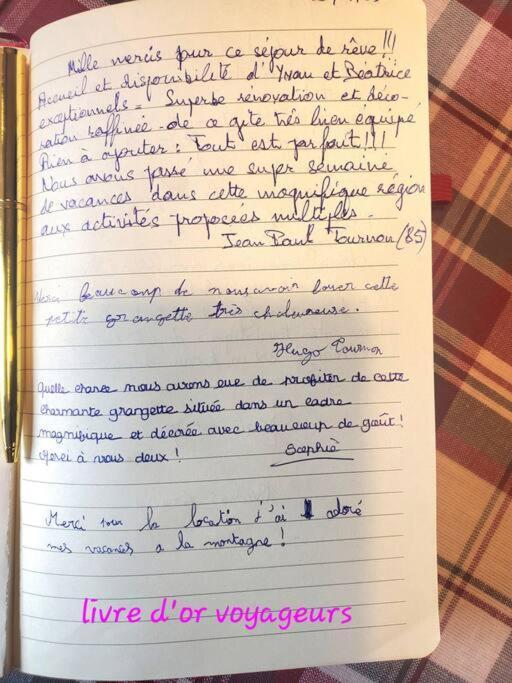 Mille mercis pour ce séjour de rêve !!!
Accueil et disponibilité d'Yvan et Béatrice
exceptionnels - Superbe rénovation et déco-
ration raffinée de ce gîte très bien équipé
Rien à ajouter : Tout est parfait !!!
Nous avons passé une super semaine
de vacances dans cette magnifique région
aux activités proposées multiples -
Jean Paul Tournon (85)
Merci beaucoup de nous avoir louer cette
petite grangette très chaleureuse.
Hugo Tournon
Quelle chance nous avons eue de profiter de cette
charmante grangette située dans un cadre
magnifique et décorée avec beaucoup de goût !
Merci à vous deux ! Sophie
Merci pour la location j'ai adoré
mes vacances a la montagne !
livre d'or voyageurs